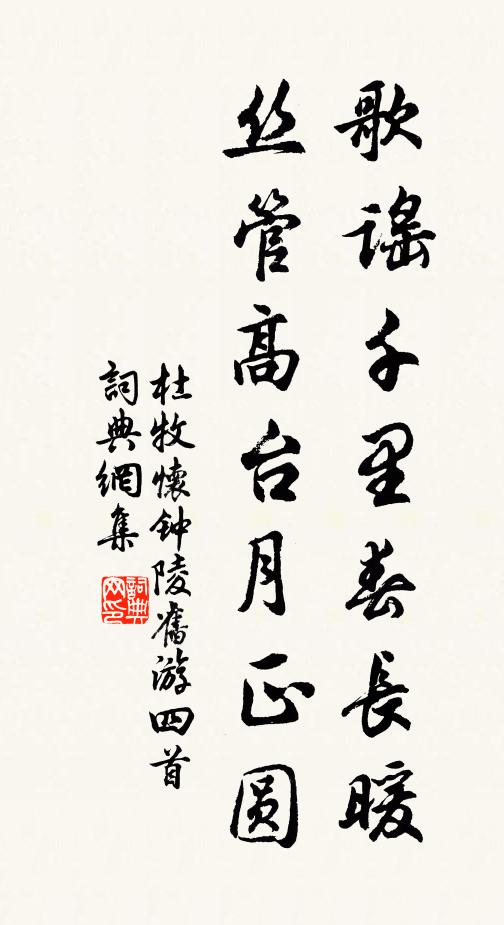 歌謠千里春長暖
丝管高台月正圆
杜牧懷钟陵舊游四首
詞典網集
詞典网印